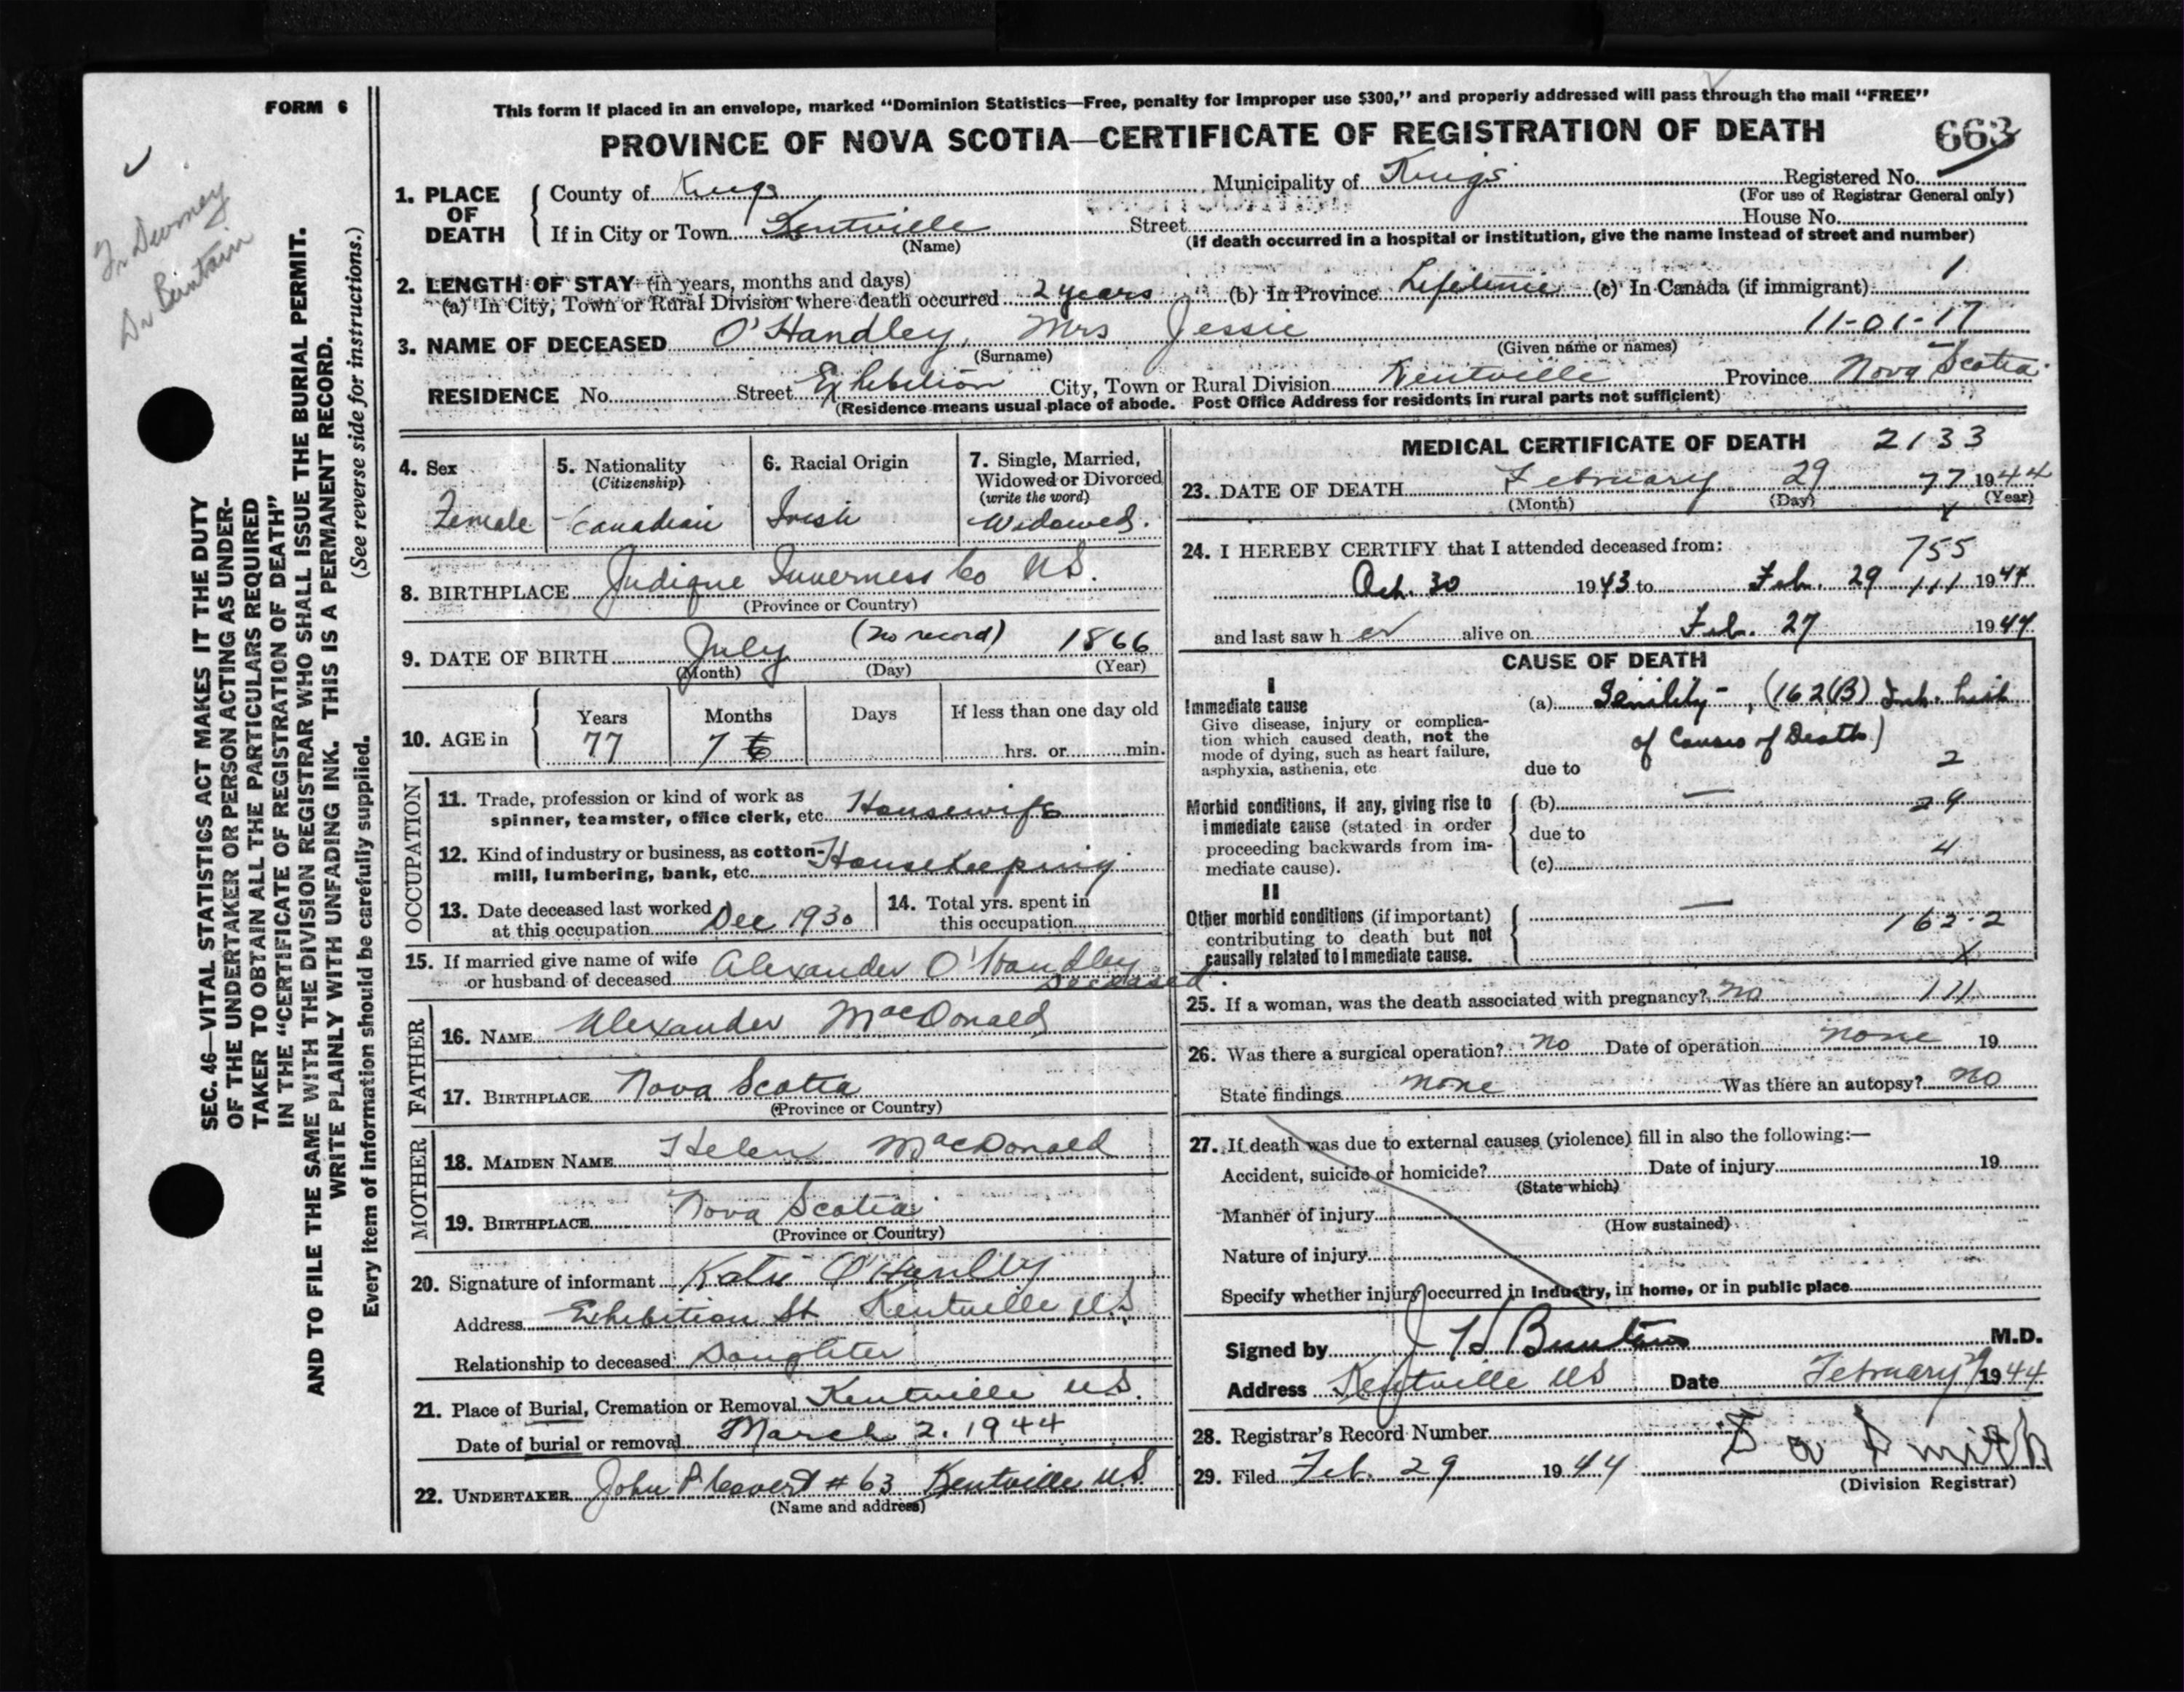 FORM 6
This form if placed in an envelope, marked “Dominion Statistics—Free, penalty for improper use $300,” and properly addressed will pass through the mail “FREE”
PROVINCE OF NOVA SCOTIA—CERTIFICATE OF REGISTRATION OF DEATH
663
1. PLACE OF DEATH
County of Kings Municipality of Kings Registered No.
(For use of Registrar General only)
If in City or Town Kentville Street House No.
(Name) (If death occurred in a hospital or institution, give the name instead of street and number)
2. LENGTH OF STAY (in years, months and days) 1
(a) In City, Town or Rural Division where death occurred 2 years (b) In Province Lifetime (c) In Canada (if immigrant)
11-01-17
3. NAME OF DECEASED O'Handley, Mrs Jessie
(Surname) (Given name or names)
RESIDENCE No. Street Exhibition City, Town or Rural Division Kentville Province Nova Scotia
(Residence means usual place of abode. Post Office Address for residents in rural parts not sufficient)
4. Sex
Female
5. Nationality
(Citizenship)
Canadian
6. Racial Origin
Irish
7. Single, Married,
Widowed or Divorced
(write the word)
Widowed.
8. BIRTHPLACE Judique Inverness Co N.S.
(Province or Country)
9. DATE OF BIRTH July (no record) 1866
(Month) (Day) (Year)
10. AGE in
Years Months Days If less than one day old
77 7 6 hrs. or min.
OCCUPATION
11. Trade, profession or kind of work as
spinner, teamster, office clerk, etc. Housewife
12. Kind of industry or business, as cotton-
mill, lumbering, bank, etc. Housekeeping
13. Date deceased last worked
at this occupation Dec 1930
14. Total yrs. spent in
this occupation
15. If married give name of wife
or husband of deceased Alexander O'Handley
Deceased.
FATHER
16. NAME Alexander MacDonald
17. BIRTHPLACE Nova Scotia
(Province or Country)
MOTHER
18. MAIDEN NAME Helen MacDonald
19. BIRTHPLACE Nova Scotia
(Province or Country)
20. Signature of informant Katie O'Handley
Address Exhibition St Kentville N.S.
Relationship to deceased Daughter
21. Place of Burial, Cremation or Removal Kentville N.S.
Date of burial or removal March 2. 1944
22. UNDERTAKER John P # 63 Kentville N.S.
(Name and address)
MEDICAL CERTIFICATE OF DEATH 2133
23. DATE OF DEATH February 29 77 1944
(Month) (Day) (Year)
24. I HEREBY CERTIFY that I attended deceased from: 755
Oct. 30 1943 to Feb. 29 111 1944
and last saw h er alive on Feb. 27 1944
CAUSE OF DEATH
I
Immediate cause
Give disease, injury or complica-
tion which caused death, not the
mode of dying, such as heart failure,
asphyxia, asthenia, etc
(a) Senility -, (162(B) Int. List
of Causes of Death.)
due to 2
Morbid conditions, if any, giving rise to
immediate cause (stated in order
proceeding backwards from im-
mediate cause).
(b) — 29
due to
(c) 4
II
Other morbid conditions (if important)
contributing to death but not
causally related to immediate cause.
—
162-2
X
25. If a woman, was the death associated with pregnancy? No 111
26. Was there a surgical operation? No Date of operation none 19
State findings none Was there an autopsy? no
27. If death was due to external causes (violence) fill in also the following:—
Accident, suicide or homicide? Date of injury 19
(State which)
Manner of injury
(How sustained)
Nature of injury
Specify whether injury occurred in industry, in home, or in public place
Signed by J H M.D.
Address Kentville N.S. Date February 29 1944
28. Registrar's Record Number
29. Filed Feb. 29 1944 Smith
(Division Registrar)
SEC. 46—VITAL STATISTICS ACT MAKES IT THE DUTY
OF THE UNDERTAKER OR PERSON ACTING AS UNDER-
TAKER TO OBTAIN ALL THE PARTICULARS REQUIRED
IN THE “CERTIFICATE OF REGISTRATION OF DEATH”
AND TO FILE THE SAME WITH THE DIVISION REGISTRAR WHO SHALL ISSUE THE BURIAL PERMIT.
WRITE PLAINLY WITH UNFADING INK. THIS IS A PERMANENT RECORD.
(See reverse side for instructions.)
Every item of information should be carefully supplied.